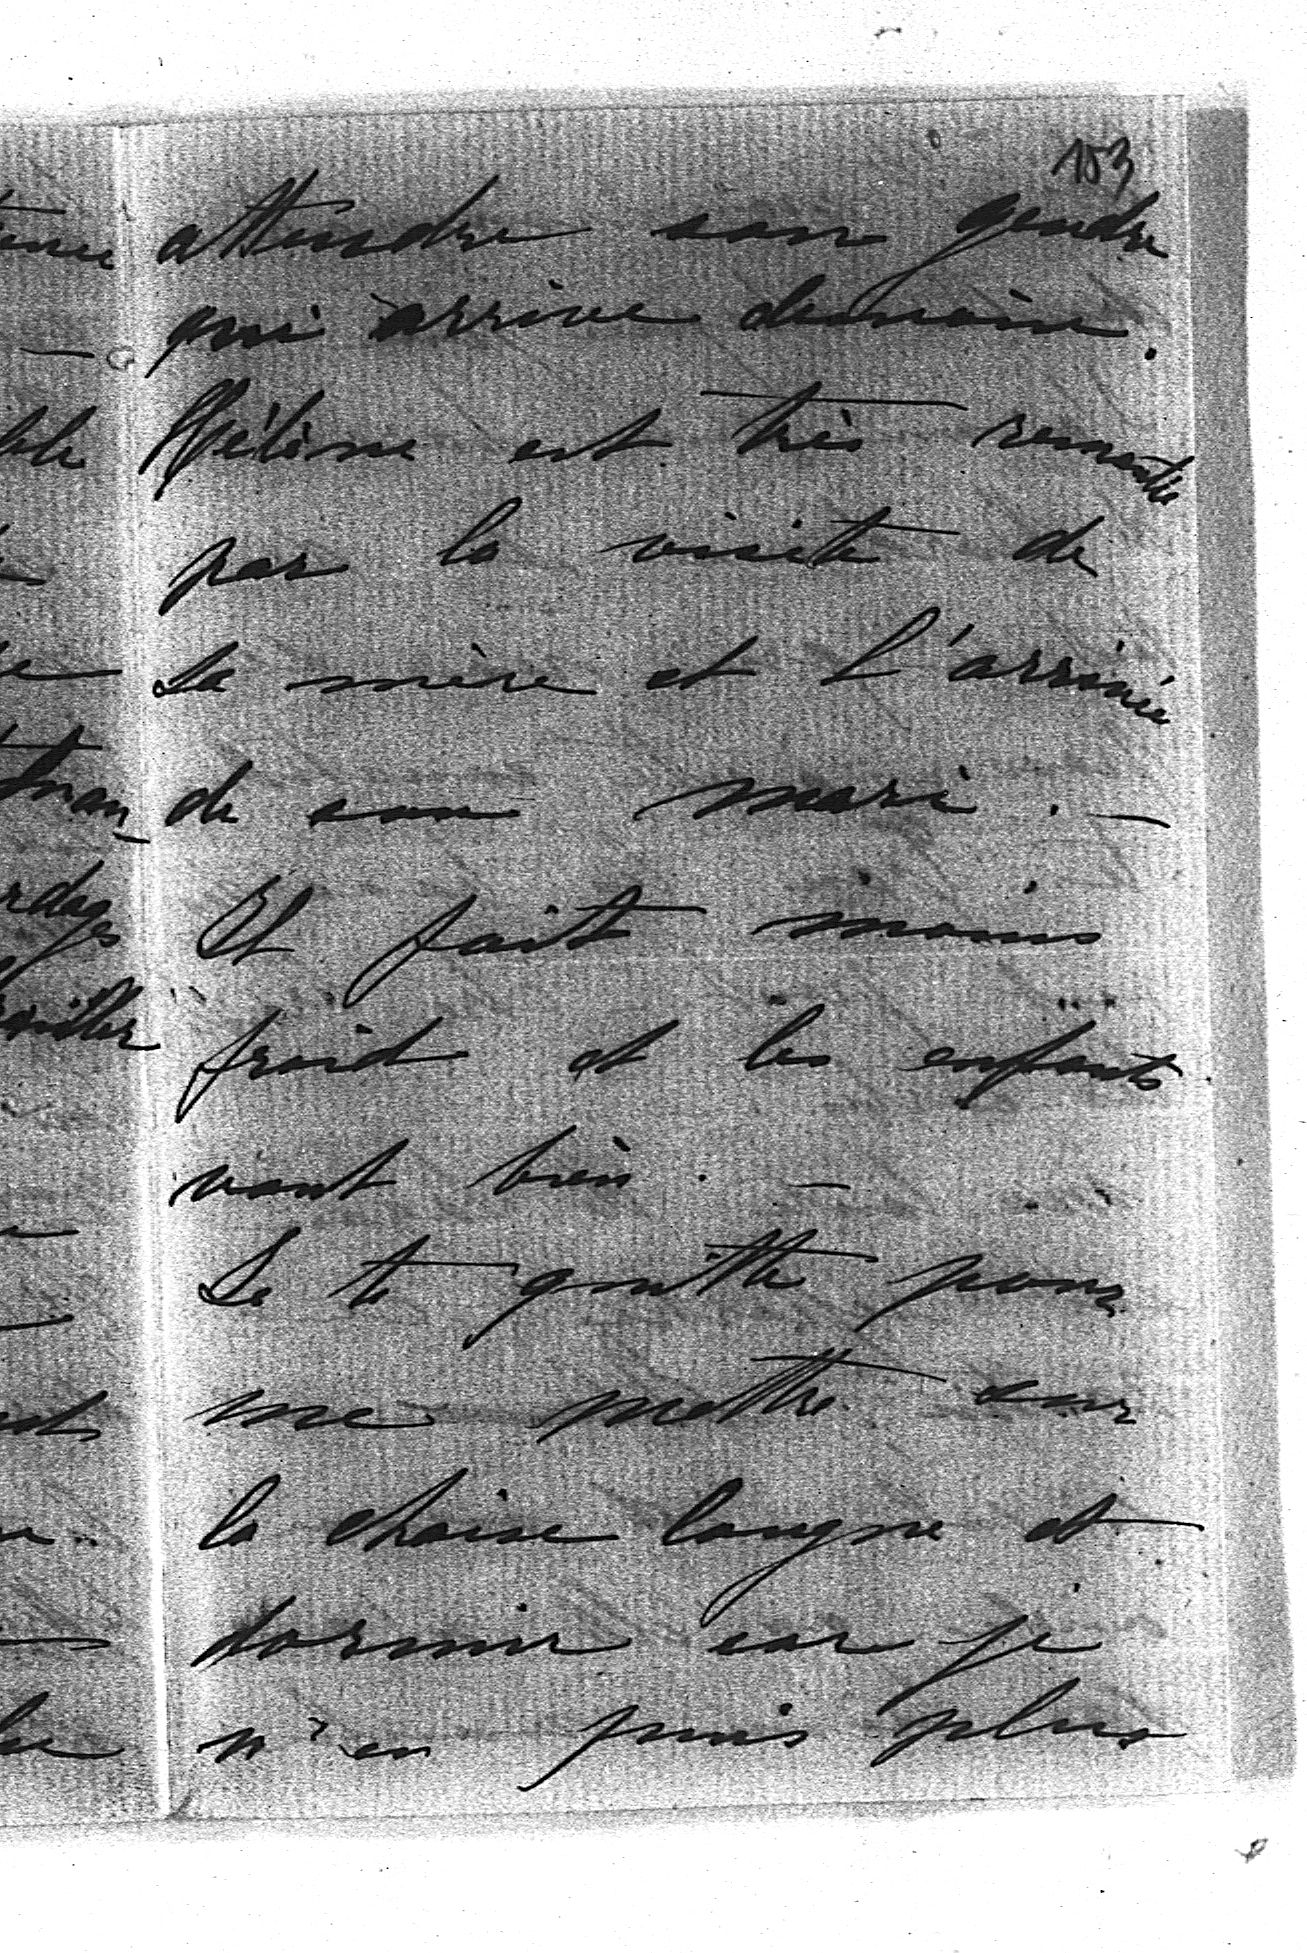 153
attendre son gendre
qui arrive demain.
Hélène est très remontée
par la visite de
sa mère et l'arrivée
de son mari. —
Il fait moins
froid et les enfants
vont bien. —
Je te quitte pour
me mettre sur
la chaise longue et
dormir car je
n'en puis plus